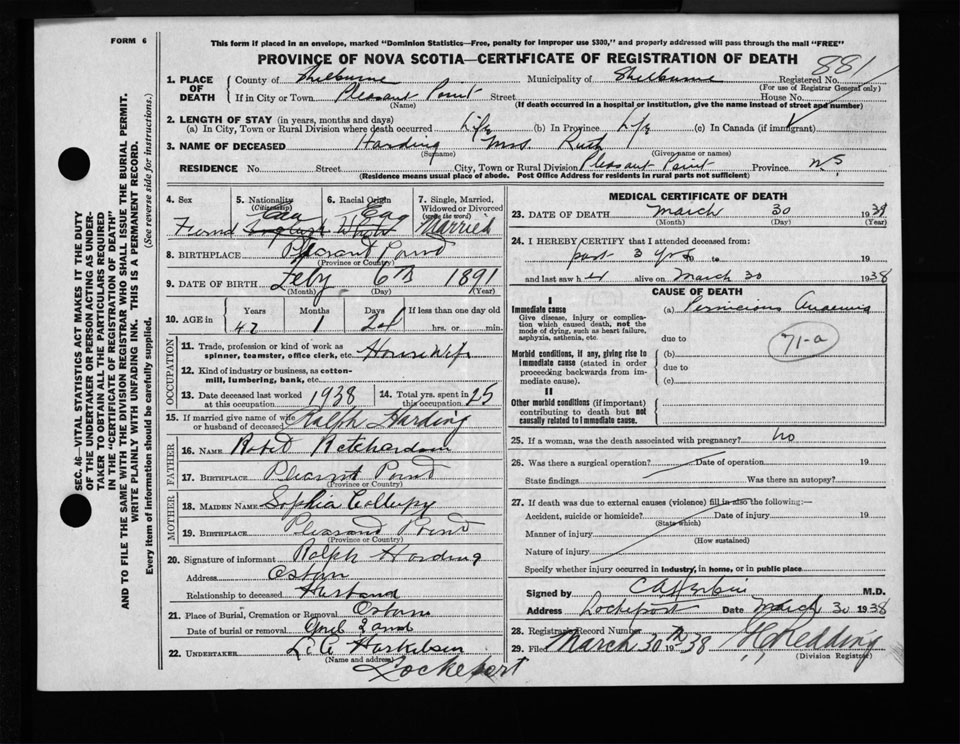 FORM 6
This form if placed in an envelope, marked "Dominion Statistics—Free, penalty for improper use $300," and properly addressed will pass through the mail "FREE"
PROVINCE OF NOVA SCOTIA—CERTIFICATE OF REGISTRATION OF DEATH
881
1. PLACE OF DEATH
County of Shelburne Municipality of Shelburne Registered No.
(For use of Registrar General only)
If in City or Town Pleasant Point Street House No.
(Name) (If death occurred in a hospital or institution, give the name instead of street and number)
2. LENGTH OF STAY (in years, months and days)
(a) In City, Town or Rural Division where death occurred Life (b) In Province Life (c) In Canada (if immigrant)
3. NAME OF DECEASED Harding Mrs. Ruth
(Surname) (Given name or names)
RESIDENCE No. Street City, Town or Rural Division Pleasant Point Province N.S.
(Residence means usual place of abode. Post Office Address for residents in rural parts not sufficient)
4. Sex 5. Nationality (Citizenship) 6. Racial Origin 7. Single, Married, Widowed or Divorced (write the word)
Married
8. BIRTHPLACE Pleasant Point
(Province or Country)
9. DATE OF BIRTH Feby 6th 1891
(Month) (Day) (Year)
10. AGE in Years Months Days If less than one day old
47 1 24 hrs. or min.
OCCUPATION
11. Trade, profession or kind of work as spinner, teamster, office clerk, etc. House Wife
12. Kind of industry or business, as cotton-mill, lumbering, bank, etc.
13. Date deceased last worked at this occupation 1938 14. Total yrs. spent in this occupation 25
15. If married give name of wife or husband of deceased Ralph Harding
FATHER
16. NAME Robert
17. BIRTHPLACE Pleasant Point
(Province or Country)
MOTHER
18. MAIDEN NAME Sophia
19. BIRTHPLACE Pleasant Point
(Province or Country)
20. Signature of informant Ralph Harding
Address
Relationship to deceased Husband
21. Place of Burial, Cremation or Removal
Date of burial or removal April 2nd
22. UNDERTAKER
(Name and address)
Lockeport
MEDICAL CERTIFICATE OF DEATH
23. DATE OF DEATH March 30 1938
(Month) (Day) (Year)
24. I HEREBY CERTIFY that I attended deceased from:
past 3 yrs to
and last saw her alive on March 30 1938
CAUSE OF DEATH
I
Immediate cause (a) Pernicious Anaemia
Give disease, injury or complication which caused death, not the mode of dying, such as heart failure, asphyxia, asthenia, etc.
due to
71-a
Morbid conditions, if any, giving rise to immediate cause (stated in order proceeding backwards from immediate cause).
(b)
due to
(c)
II
Other morbid conditions (if important) contributing to death but not causally related to immediate cause.
25. If a woman, was the death associated with pregnancy? no
26. Was there a surgical operation? Date of operation 19
State findings Was there an autopsy?
27. If death was due to external causes (violence) fill in also the following:—
Accident, suicide or homicide? Date of injury 19
(State which)
Manner of injury
(How sustained)
Nature of injury
Specify whether injury occurred in industry, in home, or in public place
Signed by M.D.
Address Lockeport Date March 30 1938
28. Registrar's Record Number
29. Filed March 30th 1938 Redding
(Division Registrar)
SEC. 46—VITAL STATISTICS ACT MAKES IT THE DUTY
OF THE UNDERTAKER OR PERSON ACTING AS UNDER-
TAKER TO OBTAIN ALL THE PARTICULARS REQUIRED
IN THE "CERTIFICATE OF REGISTRATION OF DEATH"
AND TO FILE THE SAME WITH THE DIVISION REGISTRAR WHO SHALL ISSUE THE BURIAL PERMIT.
WRITE PLAINLY WITH UNFADING INK. THIS IS A PERMANENT RECORD.
Every item of information should be carefully supplied. (See reverse side for instructions.)